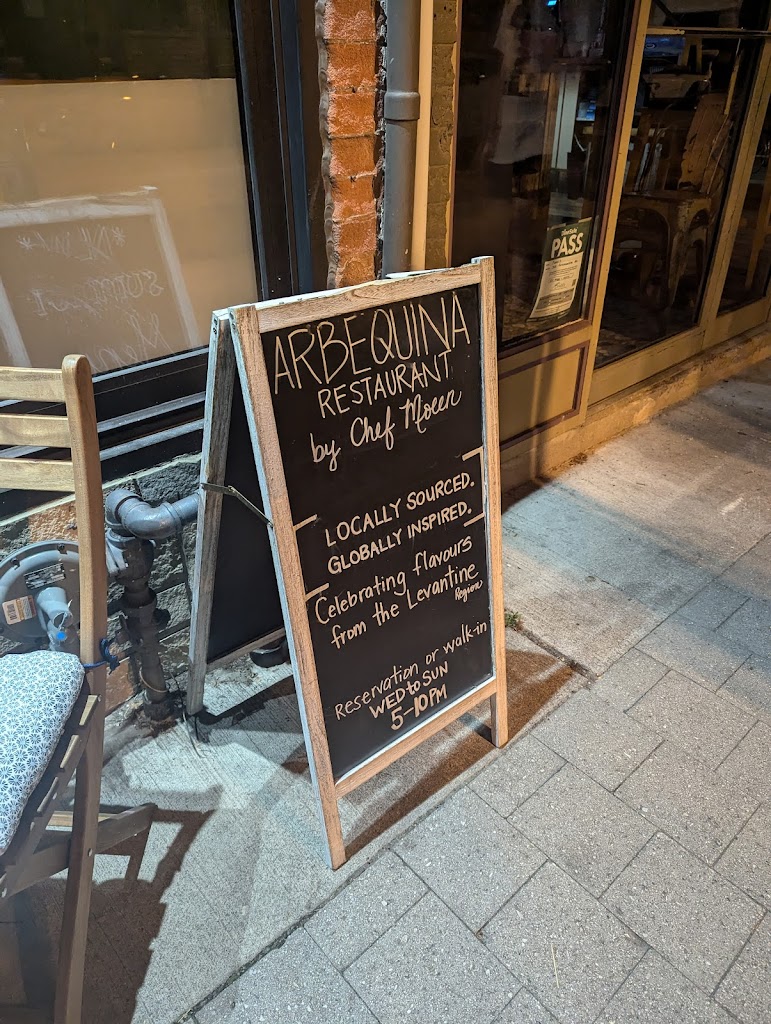 ARBEQUINA
RESTAURANT
by Chef Moeen
LOCALLY SOURCED.
GLOBALLY INSPIRED.
Celebrating flavours
from the Levantine
Region
Reservation or walk-in
WED to SUN
5-10PM
PASS